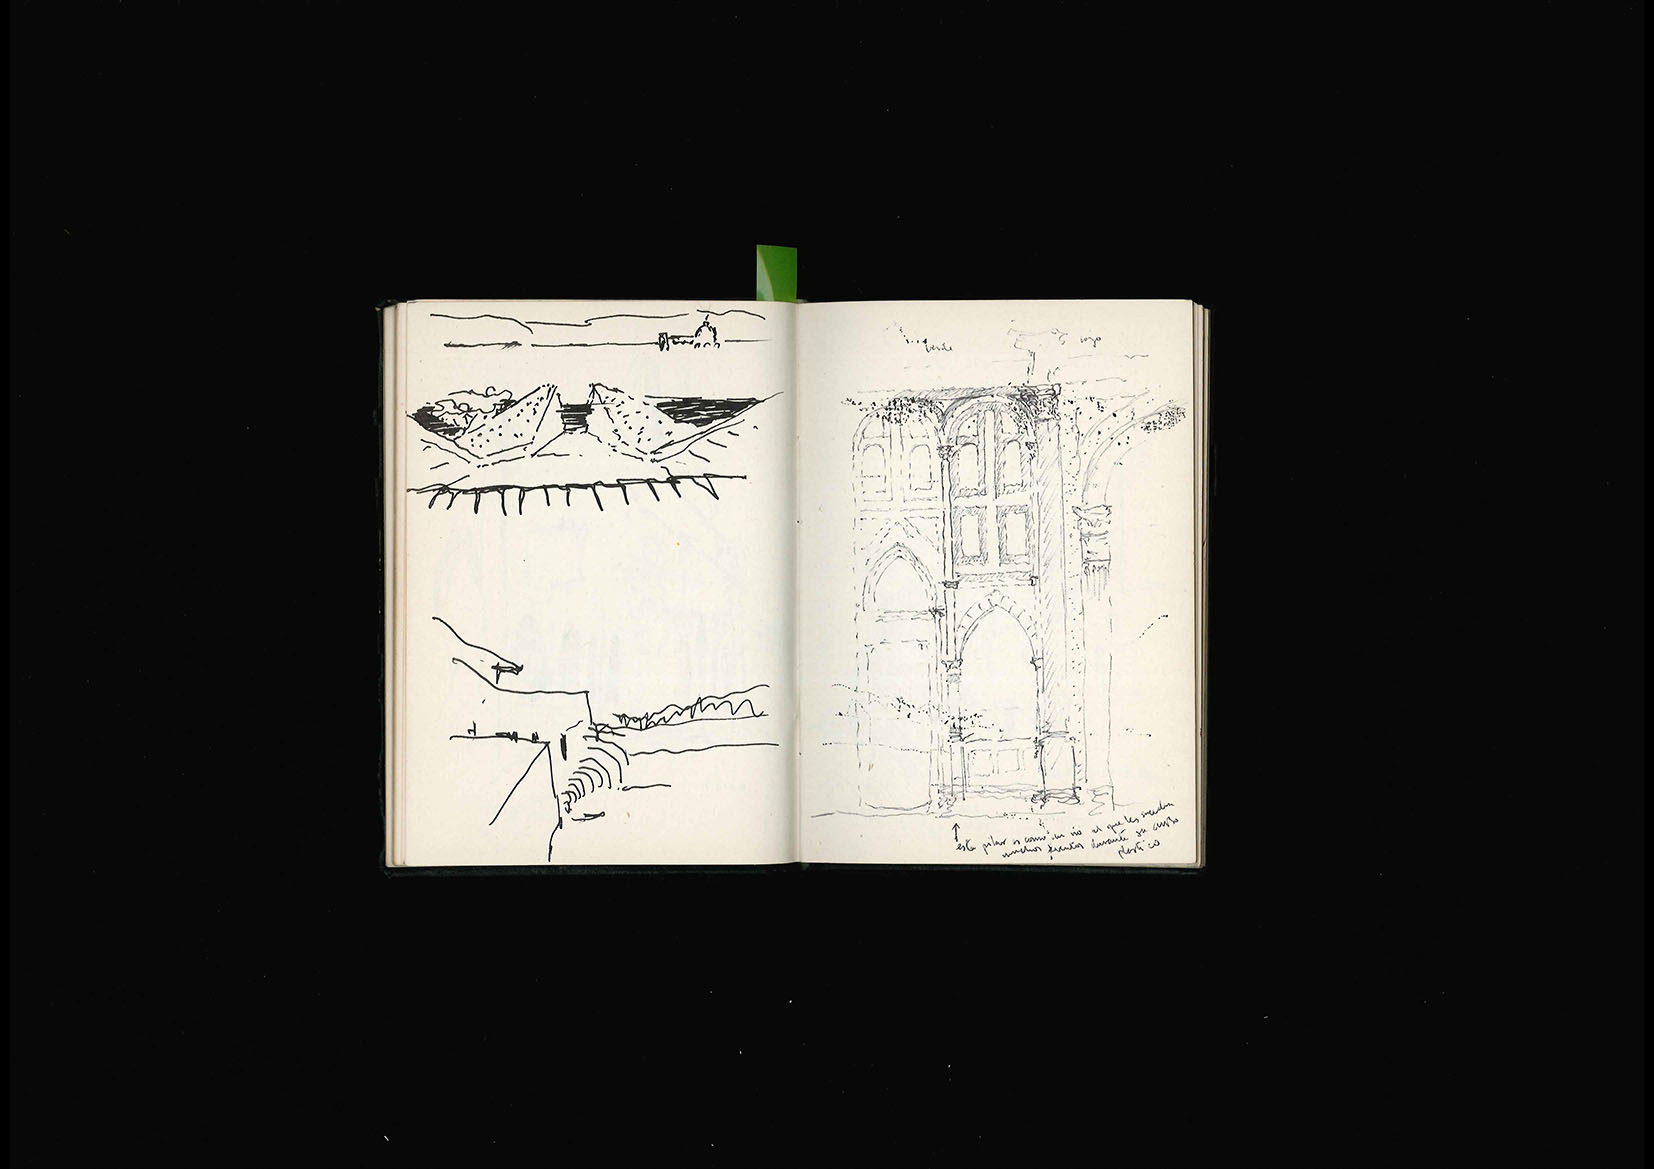 verde
rojo
este pilar es como un río al que les suceden
muchos eventos durante su curso
plástico